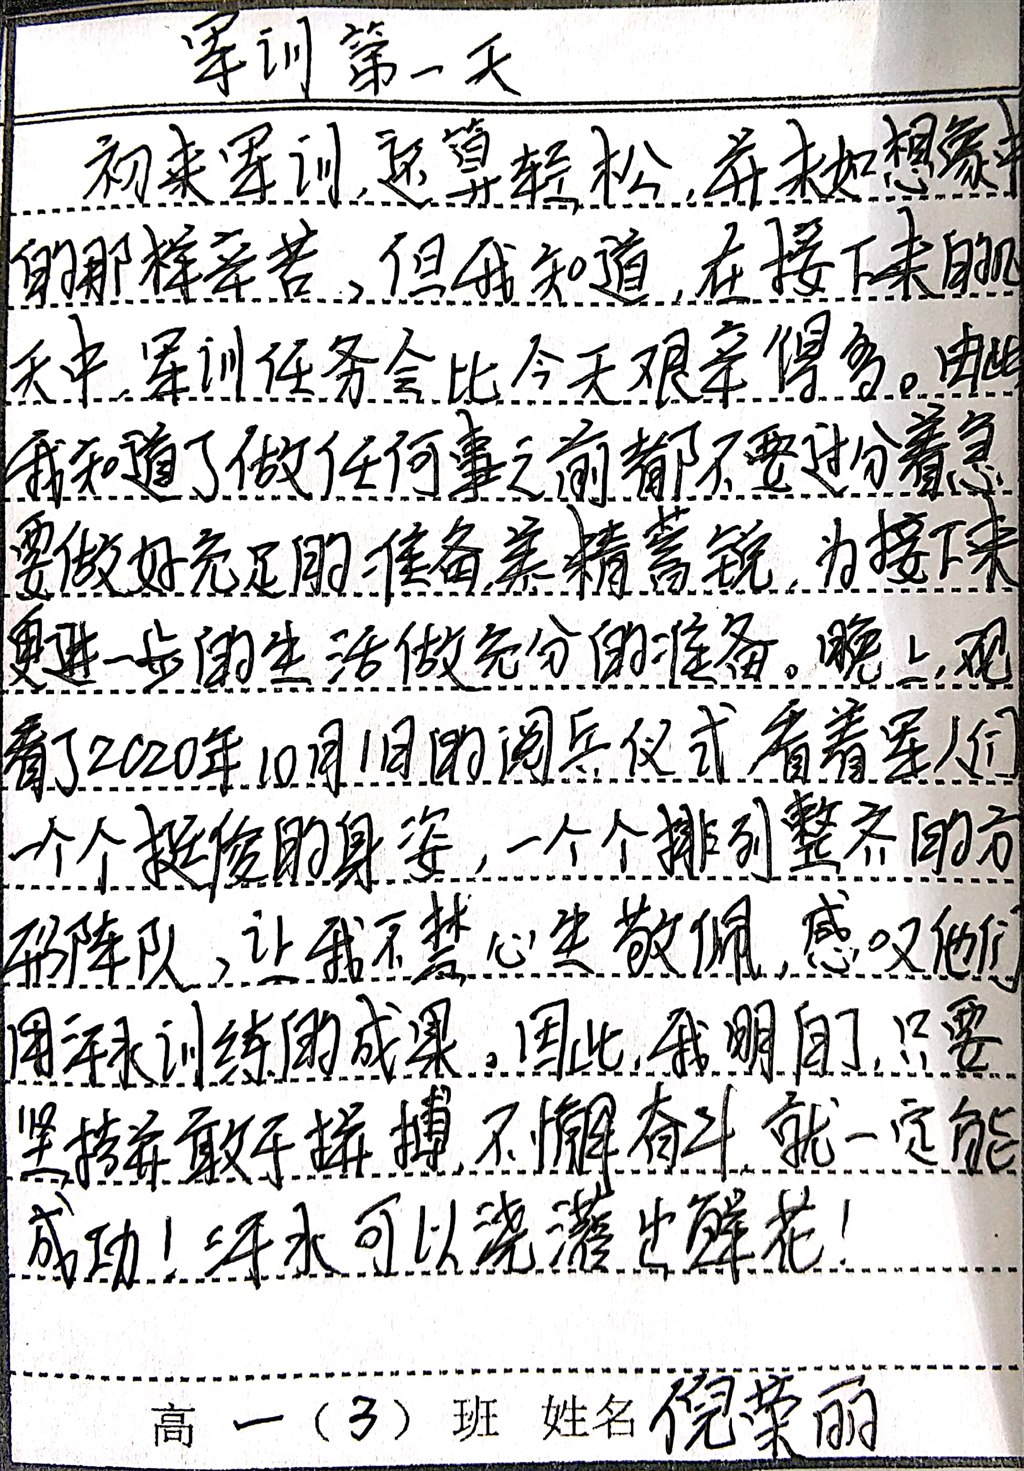 军训第一天
初来军训,还算轻松,并未如想象中
的那样辛苦,但我知道,在接下来的几
天中,军训任务会比今天艰辛得多。由此
我知道了做任何事之前都不要过分着急
要做好充足的准备,养精蓄锐,为接下来
更进一步的生活做充分的准备。晚上,观
看了2020年10月1日的阅兵仪式看着军人们
一个个挺俊的身姿,一个个排列整齐的方
形阵队,让我不禁心生敬佩,感叹他们
用汗水训练的成果。因此,我明白了,只要
坚持并敢于拼搏,不懈奋斗,就一定能
成功!汗水可以浇灌出鲜花!
高一(3)班 姓名倪荣丽